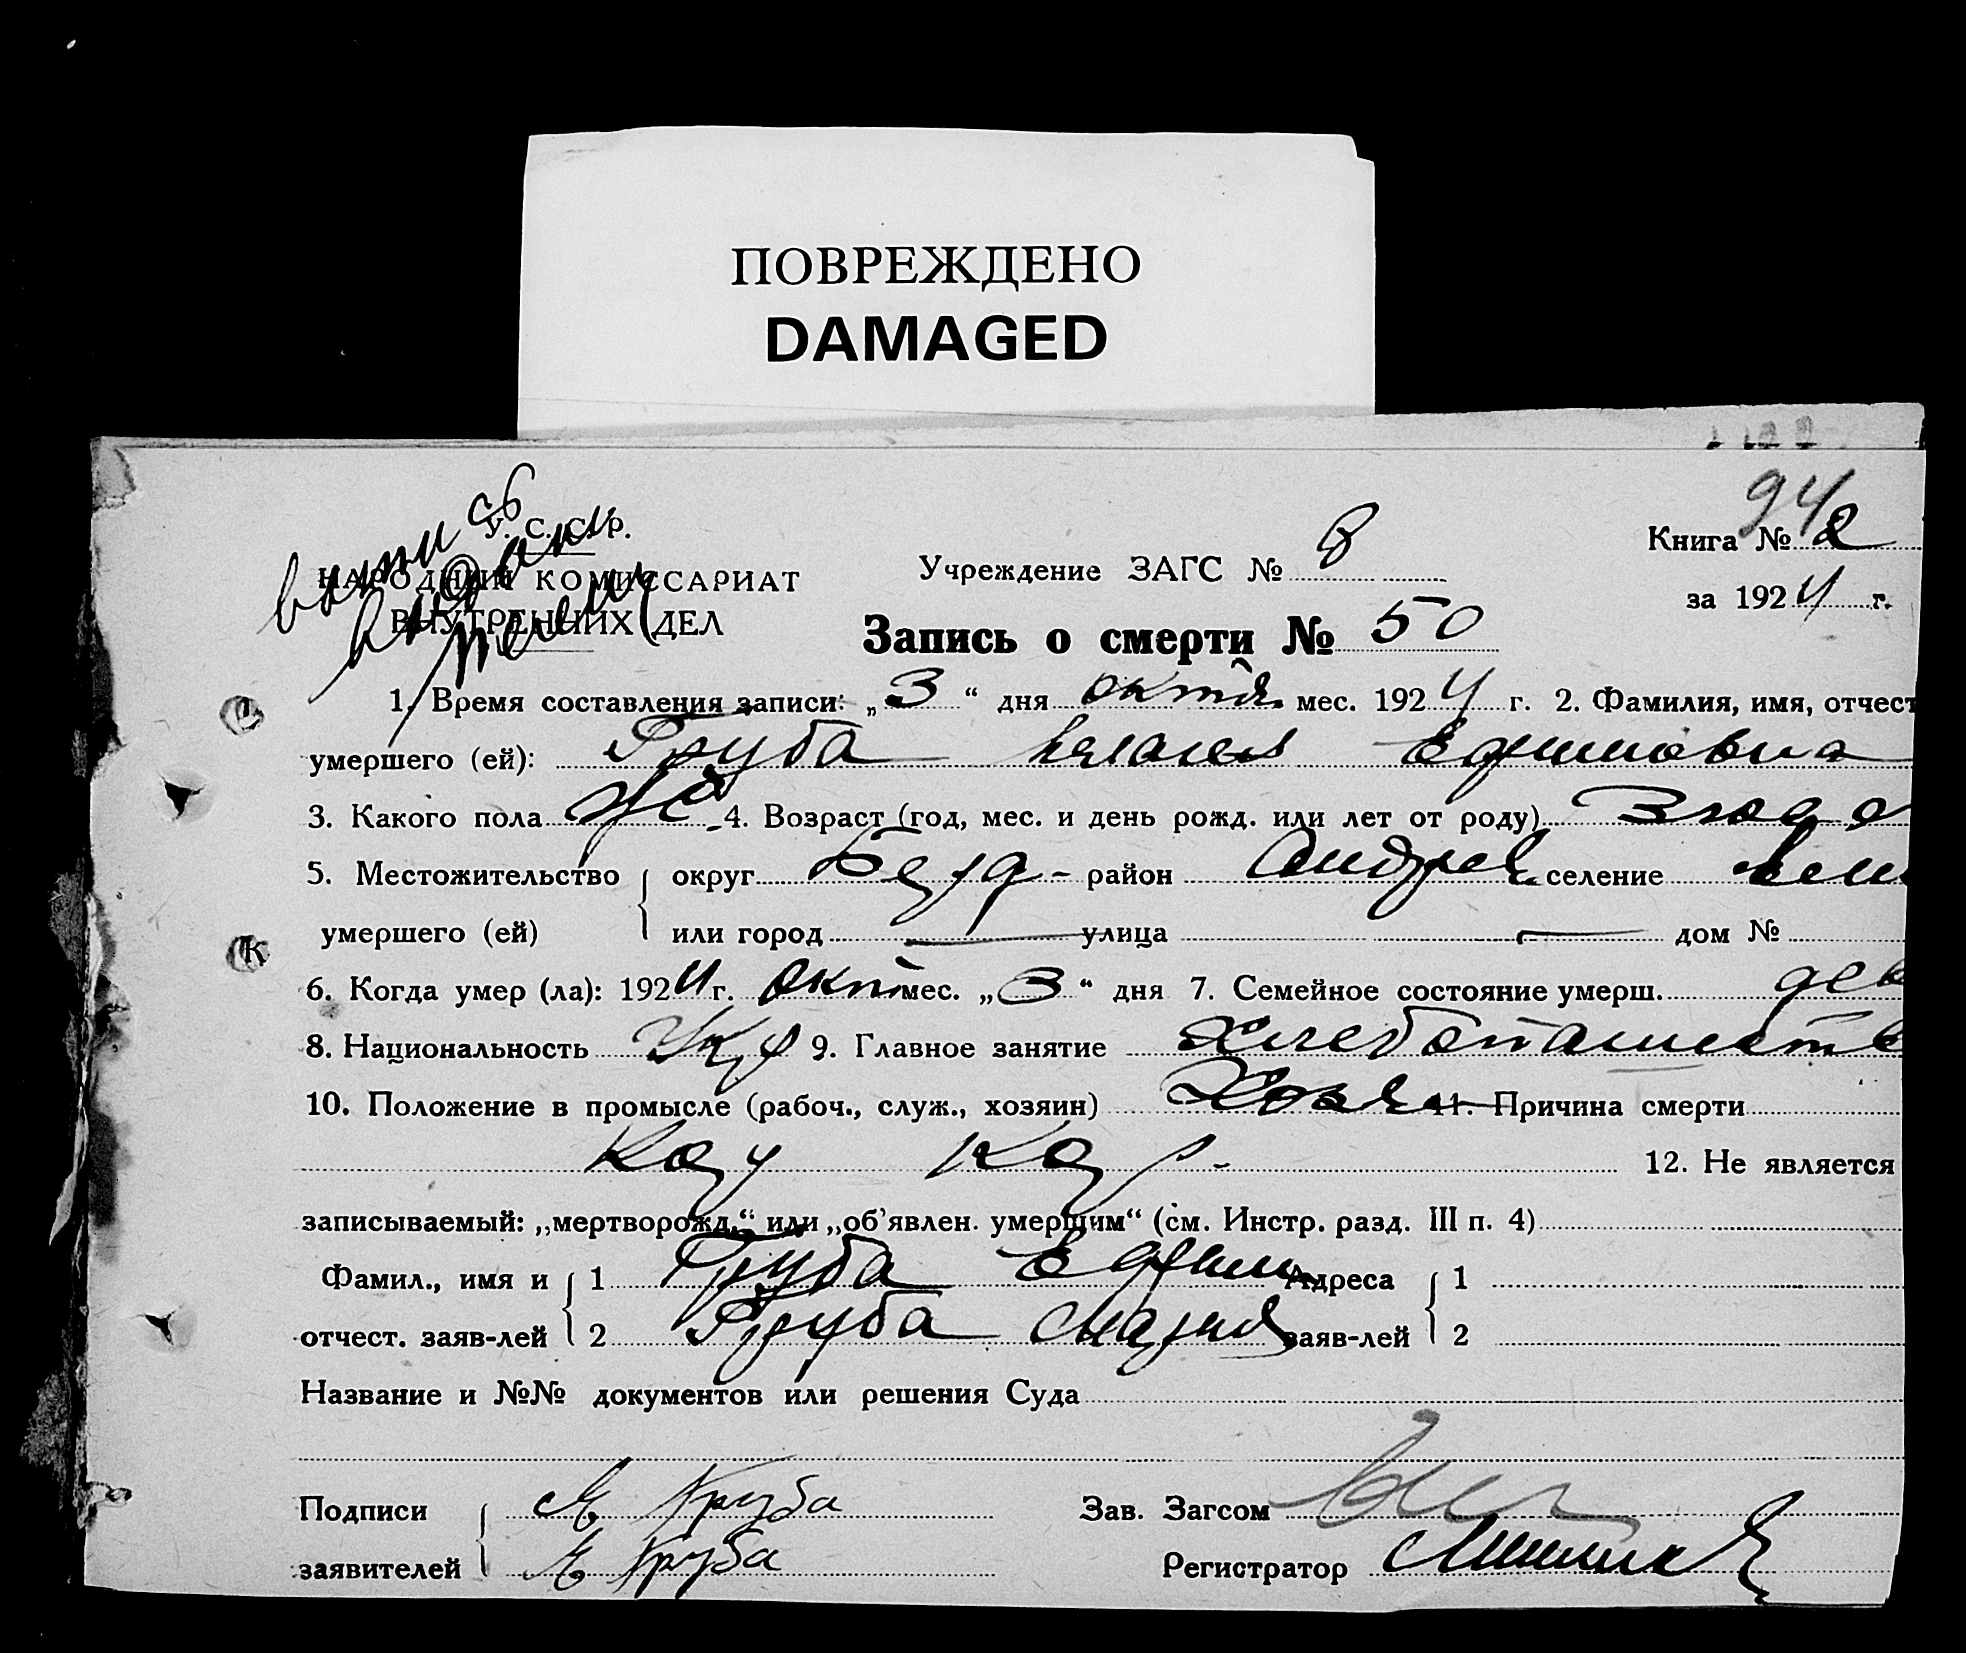 ПОВРЕЖДЕНО
DAMAGED
94
У. С. С. Р.
НАРОДНИЙ КОМИССАРИАТ
ВНУТРЕННИХ ДЕЛ
Учреждение ЗАГС № 8
Книга № 2
за 1924 г.
Запись о смерти № 50
1. Время составления записи: „3“ дня октя. мес. 1924 г. 2. Фамилия, имя, отчест
умершего (ей): Груба Ефимовна
3. Какого пола ж 4. Возраст (год, мес. и день рожд. или лет от роду) 3 года
5. Местожительство округ Берд- район Андреев. селение
умершего (ей) или город — улица — дом №
6. Когда умер (ла): 1924 г. окт мес. „3“ дня 7. Семейное состояние умерш. дев
8. Национальность Укр 9. Главное занятие Хлебопашеств
10. Положение в промысле (рабоч., служ., хозяин) Хозя 11. Причина смерти
12. Не является
записываемый: „мертворожд.“ или „об'явлен. умершим“ (см. Инстр. разд. III п. 4)
Фамил., имя и 1 Груба Ефим Адреса 1
отчест. заяв-лей 2 Груба Мария заяв-лей 2
Название и №№ документов или решения Суда
Подписи Груба Зав. Загсом
заявителей Груба Регистратор